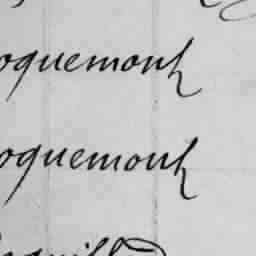 oquemont
oquemont